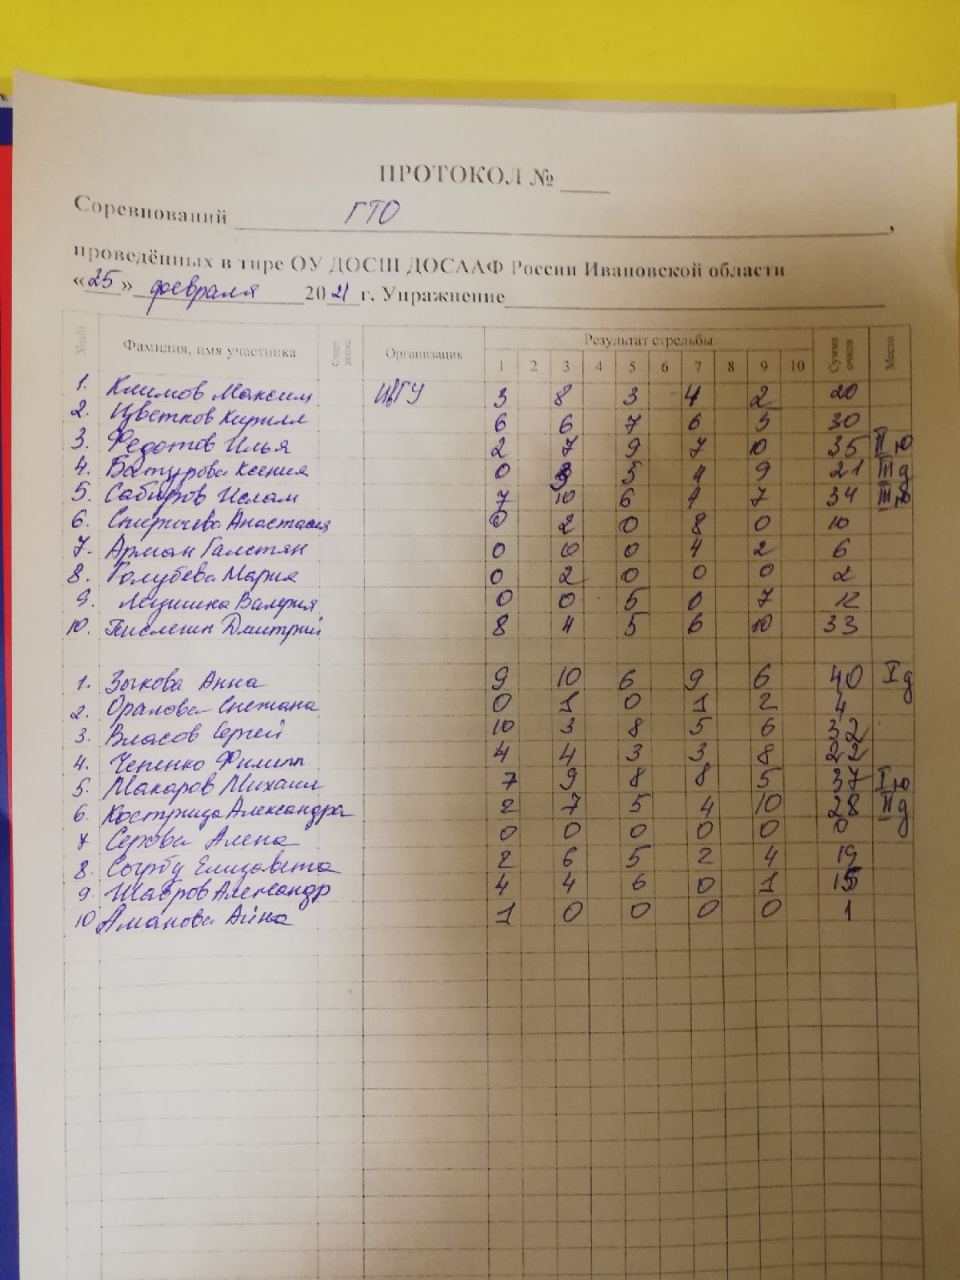 ПРОТОКОЛ № ____
Соревнований ГТО,
проведённых в тире ОУ ДОСШ ДОСААФ России Ивановской области
«25» февраля 2021 г. Упражнение
Фамилия, имя участника Организация Результат стрельбы Сумма очков Место
1 2 3 4 5 6 7 8 9 10
1. Климов Максим ИвГУ 3 8 3 4 2 20
2. Цветков Кирилл 6 6 7 6 5 30
3. Федотов Илья 2 7 9 7 10 35 II ю
4. Батурова Ксения 0 3 5 4 9 21 III д
5. Сабиров Ислам 7 10 6 4 7 34 III ю
6. Анастасия 0 2 0 8 0 10
7. Арман Галстян 0 0 0 4 2 6
8. Голубева Мария 0 2 0 0 0 2
9. Валерия 0 0 5 0 7 12
10. Дмитрий 8 4 5 6 10 33
1. Зыкова Анна 9 10 6 9 6 40 I д
2. Оралова Снежана 0 1 0 1 2 4
3. Власов Сергей 10 3 8 5 6 32
4. Чепенко Филипп 4 4 3 3 8 22
5. Макаров Михаил 7 9 8 8 5 37 I ю
6. Кострица Александра 2 7 5 4 10 28 II д
7 Серова Алена 0 0 0 0 0 0
8. Сырбу Елизавета 2 6 5 2 4 19
9. Шавров Александр 4 4 6 0 1 15
10 Аманова Айна 1 0 0 0 0 1